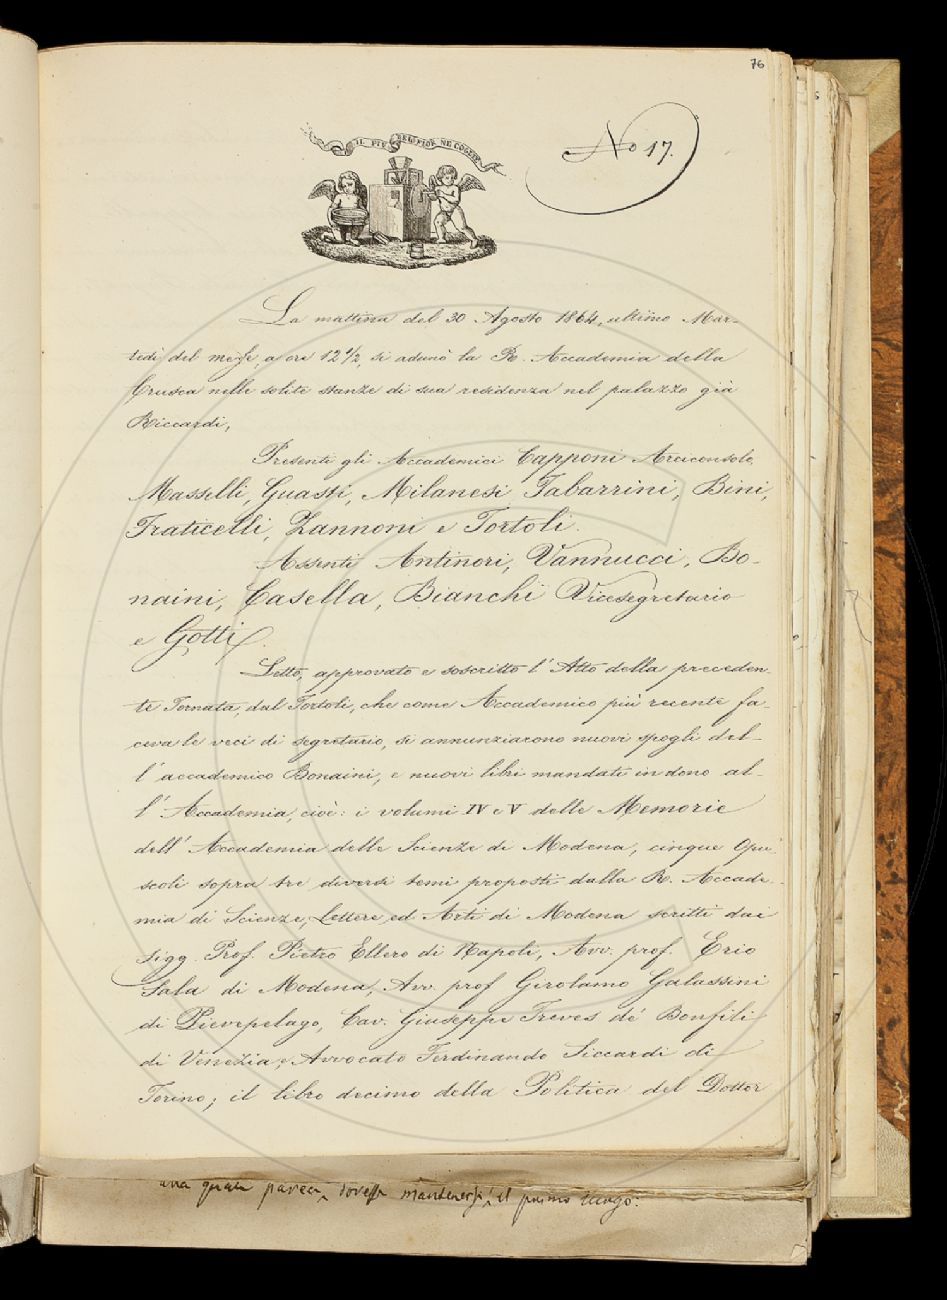 76
IL PIÙ BEL FIOR NE COGLIE
No 17.
La mattina del 30 Agosto 1864, ultimo Mar-
tedì del mese, a ore 12 1/2, si adunò la R. Accademia della
Crusca nelle solite stanze di sua residenza nel palazzo già
Riccardi,
Presenti gli Accademici Capponi Arciconsolo,
Masselli, Guasti, Milanesi Tabarrini, Bini,
Fraticelli, Zannoni e Tortoli.
Assenti Antinori, Vannucci, Bo-
naini, Casella, Bianchi Vicesegretario
e Gotti.
Letto, approvato e soscritto l'Atto della preceden-
te Tornata, dal Tortoli, che come Accademico più recente fa-
ceva le veci di segretario, si annunziarono nuovi spogli del-
l'accademico Bonaini, e nuovi libri mandati in dono al-
l'Accademia, cioè: i volumi IV e V delle Memorie
dell'Accademia delle Scienze di Modena, cinque Opu-
scoli sopra tre diversi temi proposti dalla R. Accade-
mia di Scienze, Lettere ed Arti di Modena scritti dai
Sigg. Prof. Pietro Ellero di Napoli, Avv. prof. Erio
Sala di Modena, Avv. prof Girolamo Galassini
di Pievepelago, Cav. Giuseppe Treves de' Bonfili
di Venezia, e Avvocato Ferdinando Siccardi di
Torino; il libro decimo della Politica del Dottor
una quale pareva, dovesse mantenersi il primo luogo.